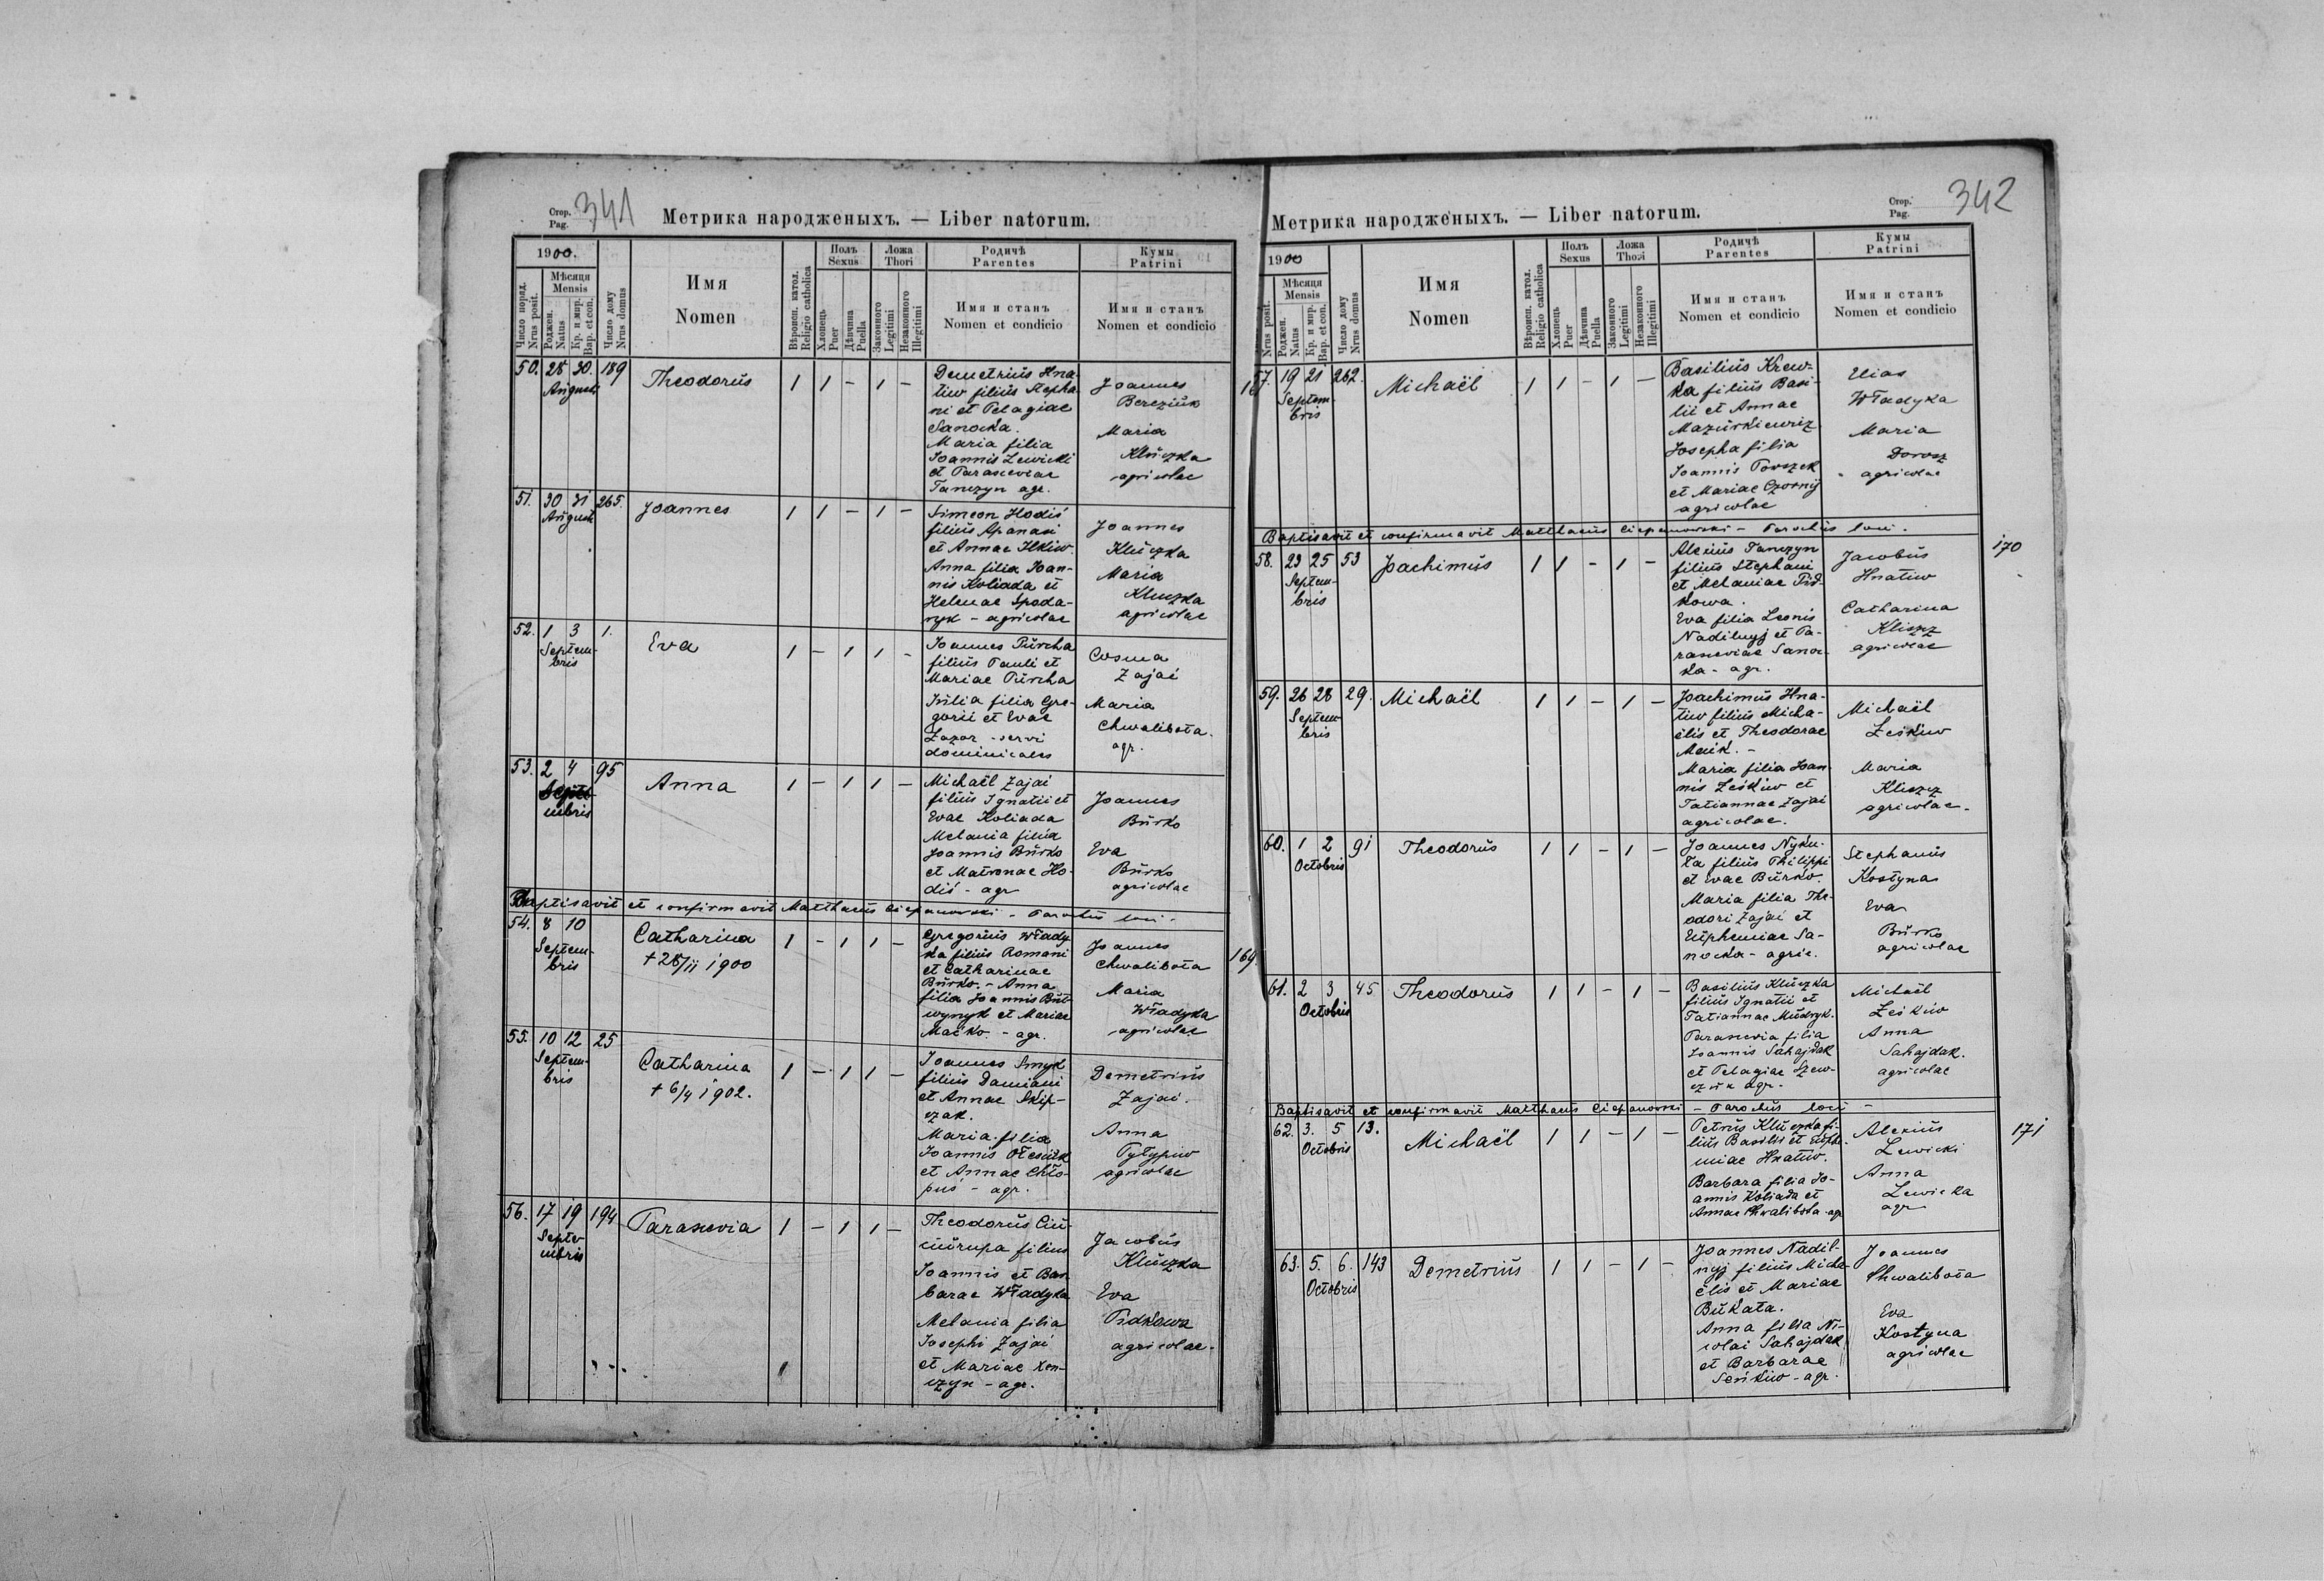 Стор.
Pag.
341
Метрика народженыхъ. — Liber natorum.
1900.
Число поряд.
Nrus posit.
Мѣсяця
Mensis
Роджен.
Natus
Кр. и мvр.
Bap. et con.
Число дому
Nrus domus
Имя
Nomen
Вѣроисп. катол.
Religio catholica
Полъ
Sexus
Хлопець
Puer
Дѣвчина
Puella
Ложа
Thori
Законного
Legitimi
Незаконного
Illegitimi
Родичѣ
Parentes
Имя и станъ
Nomen et condicio
Кумы
Patrini
Имя и станъ
Nomen et condicio
50. 28 30. 189
Augusti
Theodorus
1 1 – 1 –
Demetrius Hna-
tiw filius Stepha-
ni et Pelagiae
Sanocka.
Maria filia
Joannis Lewicki
et Parasceviae
Tanczyn agr.
Joannes
Bereziuk
Maria
Kluczka
agricolae
51. 30 31 265.
Augusti
Joannes
1 1 – 1 –
Simeon Hodiś
filius Apanasi
et Annae Ilkiw.
Anna filia Joan-
nis Koliada et
Helenae Spoda-
ryk – agricolae
Joannes
Kluczka
Maria
Kluczka
agricolae
52. 1 3 1.
Septem-
bris
Eva
1 – 1 1 –
Joannes Purcha
filius Pauli et
Mariae Purcha
Julia filia Gre-
gorii et Evae
Łazor – servi
dominicales
Cosma
Zajać
Maria
Chwalibota.
agr.
53. 2 4 95
Septe-
mbris
Anna
1 – 1 1 –
Michaël Zajać
filius Ignatii et
Evae Koliada
Melania filia
Joannis Burko
et Matronae Ho-
diś – agr
Joannes
Burko
Eva
Burko
agricolae
Baptisavit et confirmavit Matthaeus Ciepanowski – Parochus loci.
54. 8 10
Septem-
bris
Catharina
+ 28/11 1900
1 – 1 1 –
Gregorius Włady-
ka filius Romani
et Catharinae
Burko. – Anna
filia Joannis But-
wynyk et Mariae
Maćko. – agr.
Joannes
Chwalibota
Maria
Władyka
agricolae
55. 10 12 25
Septem-
bris
Catharina
+ 6/4 1902.
1 – 1 1 –
Joannes Smyk
filius Damiani
et Annae Skip-
czak.
Maria filia
Joannis Ołesiuk
et Annae Chło-
puś – agr.
Demetrius
Zajać.
Anna
Pyłypiw
agricolae
56. 17 19 194
Septe-
mbris
Parascevia
1 – 1 1 –
Theodorus Ciu-
ciurupa filius
Joannis et Bar-
barae Władyka
Melania filia
Josephi Zajać
et Mariae Kon-
czyn – agr.
Jacobus
Kluczka
Eva
Pidkowa
agricolae.
169.
Стор.
Pag.
342
Метрика народженыхъ. — Liber natorum.
1900
Nrus posit.
Мѣсяця
Mensis
Роджен.
Natus
Кр. и мvр.
Bap. et con.
Число дому
Nrus domus
Имя
Nomen
Вѣроисп. катол.
Religio catholica
Полъ
Sexus
Хлопець
Puer
Дѣвчина
Puella
Ложа
Thori
Законного
Legitimi
Незаконного
Illegitimi
Родичѣ
Parentes
Имя и станъ
Nomen et condicio
Кумы
Patrini
Имя и станъ
Nomen et condicio
57. 19 21 262.
Septem-
bris
Michaël
1 1 – 1 –
Basilius Krew-
ka filius Basi-
lii et Annae
Mazurkiewicz
Josepha filia
Joannis Towszek
et Mariae Czornij
agricolae
Elias
Władyka
Maria
Dorosz
agricolae
Baptisavit et confirmavit Matthaeus Ciepanowski – Parochus loci.
170
58. 23 25 53
Septem-
bris
Joachimus
1 1 – 1 –
Alexius Tanczyn
filius Stephani
et Melaniae Pid-
kowa.
Eva filia Leonis
Nadilnyj et Pa-
rasceviae Sanoc-
ka – agr.
Jacobus
Hnatiw
Catharina
Kliszcz
agricolae
59. 26 28 29.
Septem-
bris
Michaël
1 1 – 1 –
Joachimus Hna-
tiw filius Micha-
ëlis et Theodorae
Meuk. –
Maria filia Joan-
nis Leśkiw et
Tatiannae Zajać
agricolae.
Michaël
Leśkiw
Maria
Kliszcz
agricolae.
60. 1 2 91
Octobris
Theodorus
1 1 – 1 –
Joannes Nyku-
ła filius Philippi
et Evae Burko.
Maria filia The-
odori Zajać et
Euphemiae Sa-
nocka – agric.
Stephanus
Kostyna
Eva
Burko
agricolae
61. 2 3 45
Octobris
Theodorus
1 1 – 1 –
Basilius Kluczka
filius Ignatii et
Tatiannae Mudryk.
Parascevia filia
Joannis Sahajdak
et Pelagiae Szew-
czuk agr.
Michaël
Leśkiw
Anna
Sahajdak.
agricolae
Baptisavit et confirmavit Matthaeus Ciepanowski – Parochus loci –
62. 3. 5 13.
Octobris
Michaël
1 1 – 1 –
Petrus Kluczka fi-
lius Basilii et Euphe-
miae Hnatiw.
Barbara filia Jo-
annis Koliada et
Annae Chwalibota – agr
Alexius
Lewicki
Anna
Lewicka
agr
171
63. 5. 6. 143
Octobris
Demetrius
1 1 – 1 –
Joannes Nadil-
nyj filius Micha-
ëlis et Mariae
Bukata.
Anna filia Ni-
colai Sahajdak
et Barbarae
Seńkiw – agr.
Joannes
Chwalibota
Eva
Kostyna
agricolae